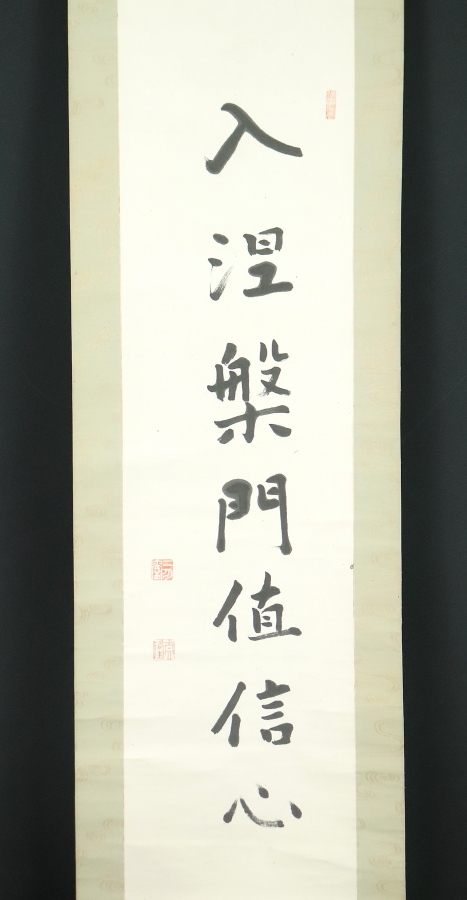 入涅槃門値信心